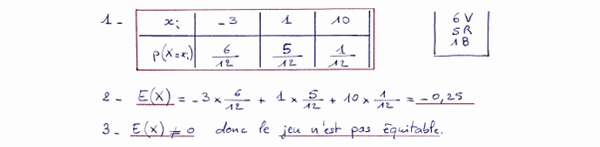 1- xi -3 1 10
p(X=xi) 6/12 5/12 1/12
6V
5R
1B
2- E(X) = -3 × 6/12 + 1 × 5/12 + 10 × 1/12 = -0,25
3- E(X) ≠ 0 donc le jeu n'est pas équitable.